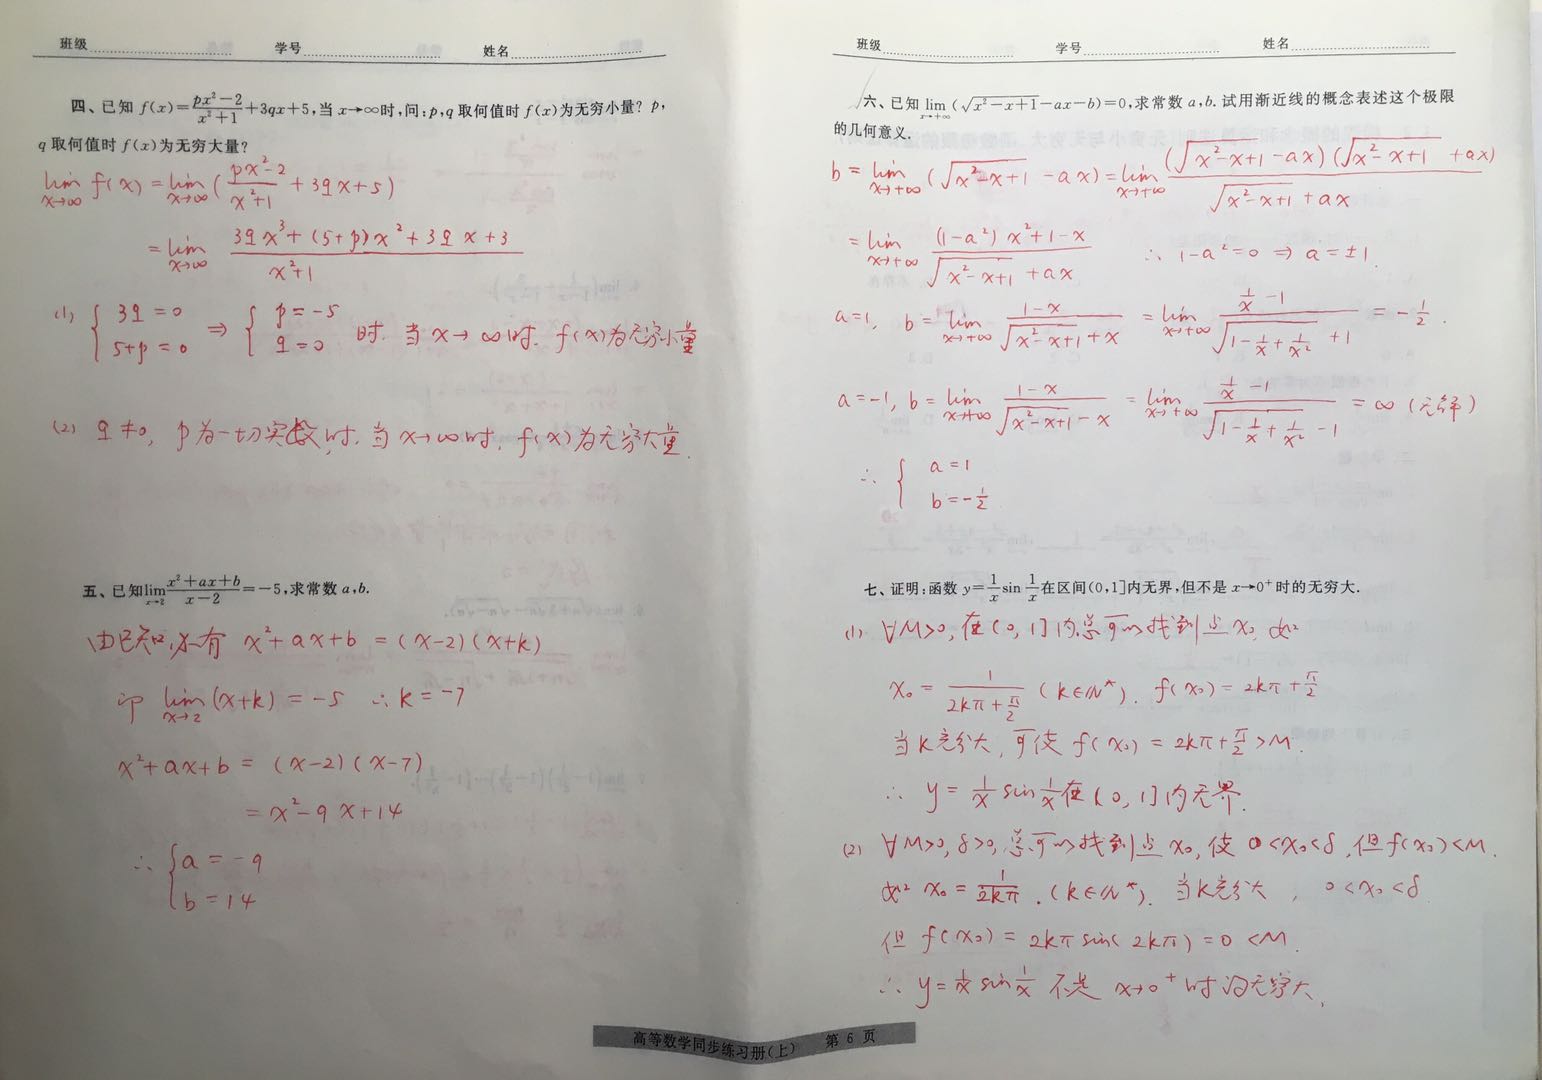 班级 学号 姓名
四、已知 f(x)=\frac{px²-2}{x²+1}+3qx+5,当 x→∞时,问:p,q 取何值时 f(x)为无穷小量? p,
q 取何值时 f(x)为无穷大量?
lim_{x→∞} f(x) = lim_{x→∞} (\frac{px²-2}{x²+1} + 3qx+5)
= lim_{x→∞} \frac{3qx³+(5+p)x²+3qx+3}{x²+1}
(1) { 3q=0 5+p=0 ⇒ { p=-5 q=0 时. 当 x→∞时. f(x)为无穷小量
(2) q≠0, p为一切实数,时. 当 x→∞时, f(x)为无穷大量.
五、已知lim_{x→2}\frac{x²+ax+b}{x-2}=-5,求常数 a,b.
由已知,必有 x²+ax+b = (x-2)(x+k)
即 lim_{x→2}(x+k) = -5 ∴ k=-7
x²+ax+b = (x-2)(x-7)
= x²-9x+14
∴ { a=-9
b=14
班级 学号 姓名
六、已知 lim_{x→+∞} (√(x²-x+1)-ax-b)=0,求常数 a,b. 试用渐近线的概念表述这个极限
的几何意义.
b = lim_{x→+∞} (√(x²-x+1) -ax) = lim_{x→+∞} \frac{(√(x²-x+1) -ax)(√(x²-x+1) +ax)}{√(x²-x+1) +ax}
= lim_{x→+∞} \frac{(1-a²)x²+1-x}{√(x²-x+1) +ax} ∴ 1-a²=0 ⇒ a=±1.
a=1, b = lim_{x→+∞} \frac{1-x}{√(x²-x+1)+x} = lim_{x→+∞} \frac{\frac{1}{x}-1}{√(1-\frac{1}{x}+\frac{1}{x²}) +1} = -\frac{1}{2}.
a=-1, b = lim_{x→+∞} \frac{1-x}{√(x²-x+1)-x} = lim_{x→+∞} \frac{\frac{1}{x}-1}{√(1-\frac{1}{x}+\frac{1}{x²}) -1} = ∞ (无解)
∴ { a=1
b=-\frac{1}{2}
七、证明:函数 y=\frac{1}{x}sin\frac{1}{x}在区间(0,1]内无界,但不是 x→0⁺时的无穷大.
(1) ∀M>0, 在(0,1]内总可以找到点 x₀, 如
x₀ = \frac{1}{2kπ+\frac{π}{2}} (k∈N*). f(x₀) = 2kπ+\frac{π}{2}
当k充分大, 可使 f(x₀) = 2kπ+\frac{π}{2}>M.
∴ y=\frac{1}{x}sin\frac{1}{x}在(0,1]内无界.
(2) ∀M>0, δ>0, 总可以找到点 x₀, 使 0<x₀<δ, 但f(x₀)<M.
如 x₀=\frac{1}{2kπ}.(k∈N*). 当k充分大, 0<x₀<δ
但 f(x₀) = 2kπ sin(2kπ) = 0 <M.
∴ y=\frac{1}{x}sin\frac{1}{x} 不是 x→0⁺时的无穷大.
高等数学同步练习册(上) 第 6 页